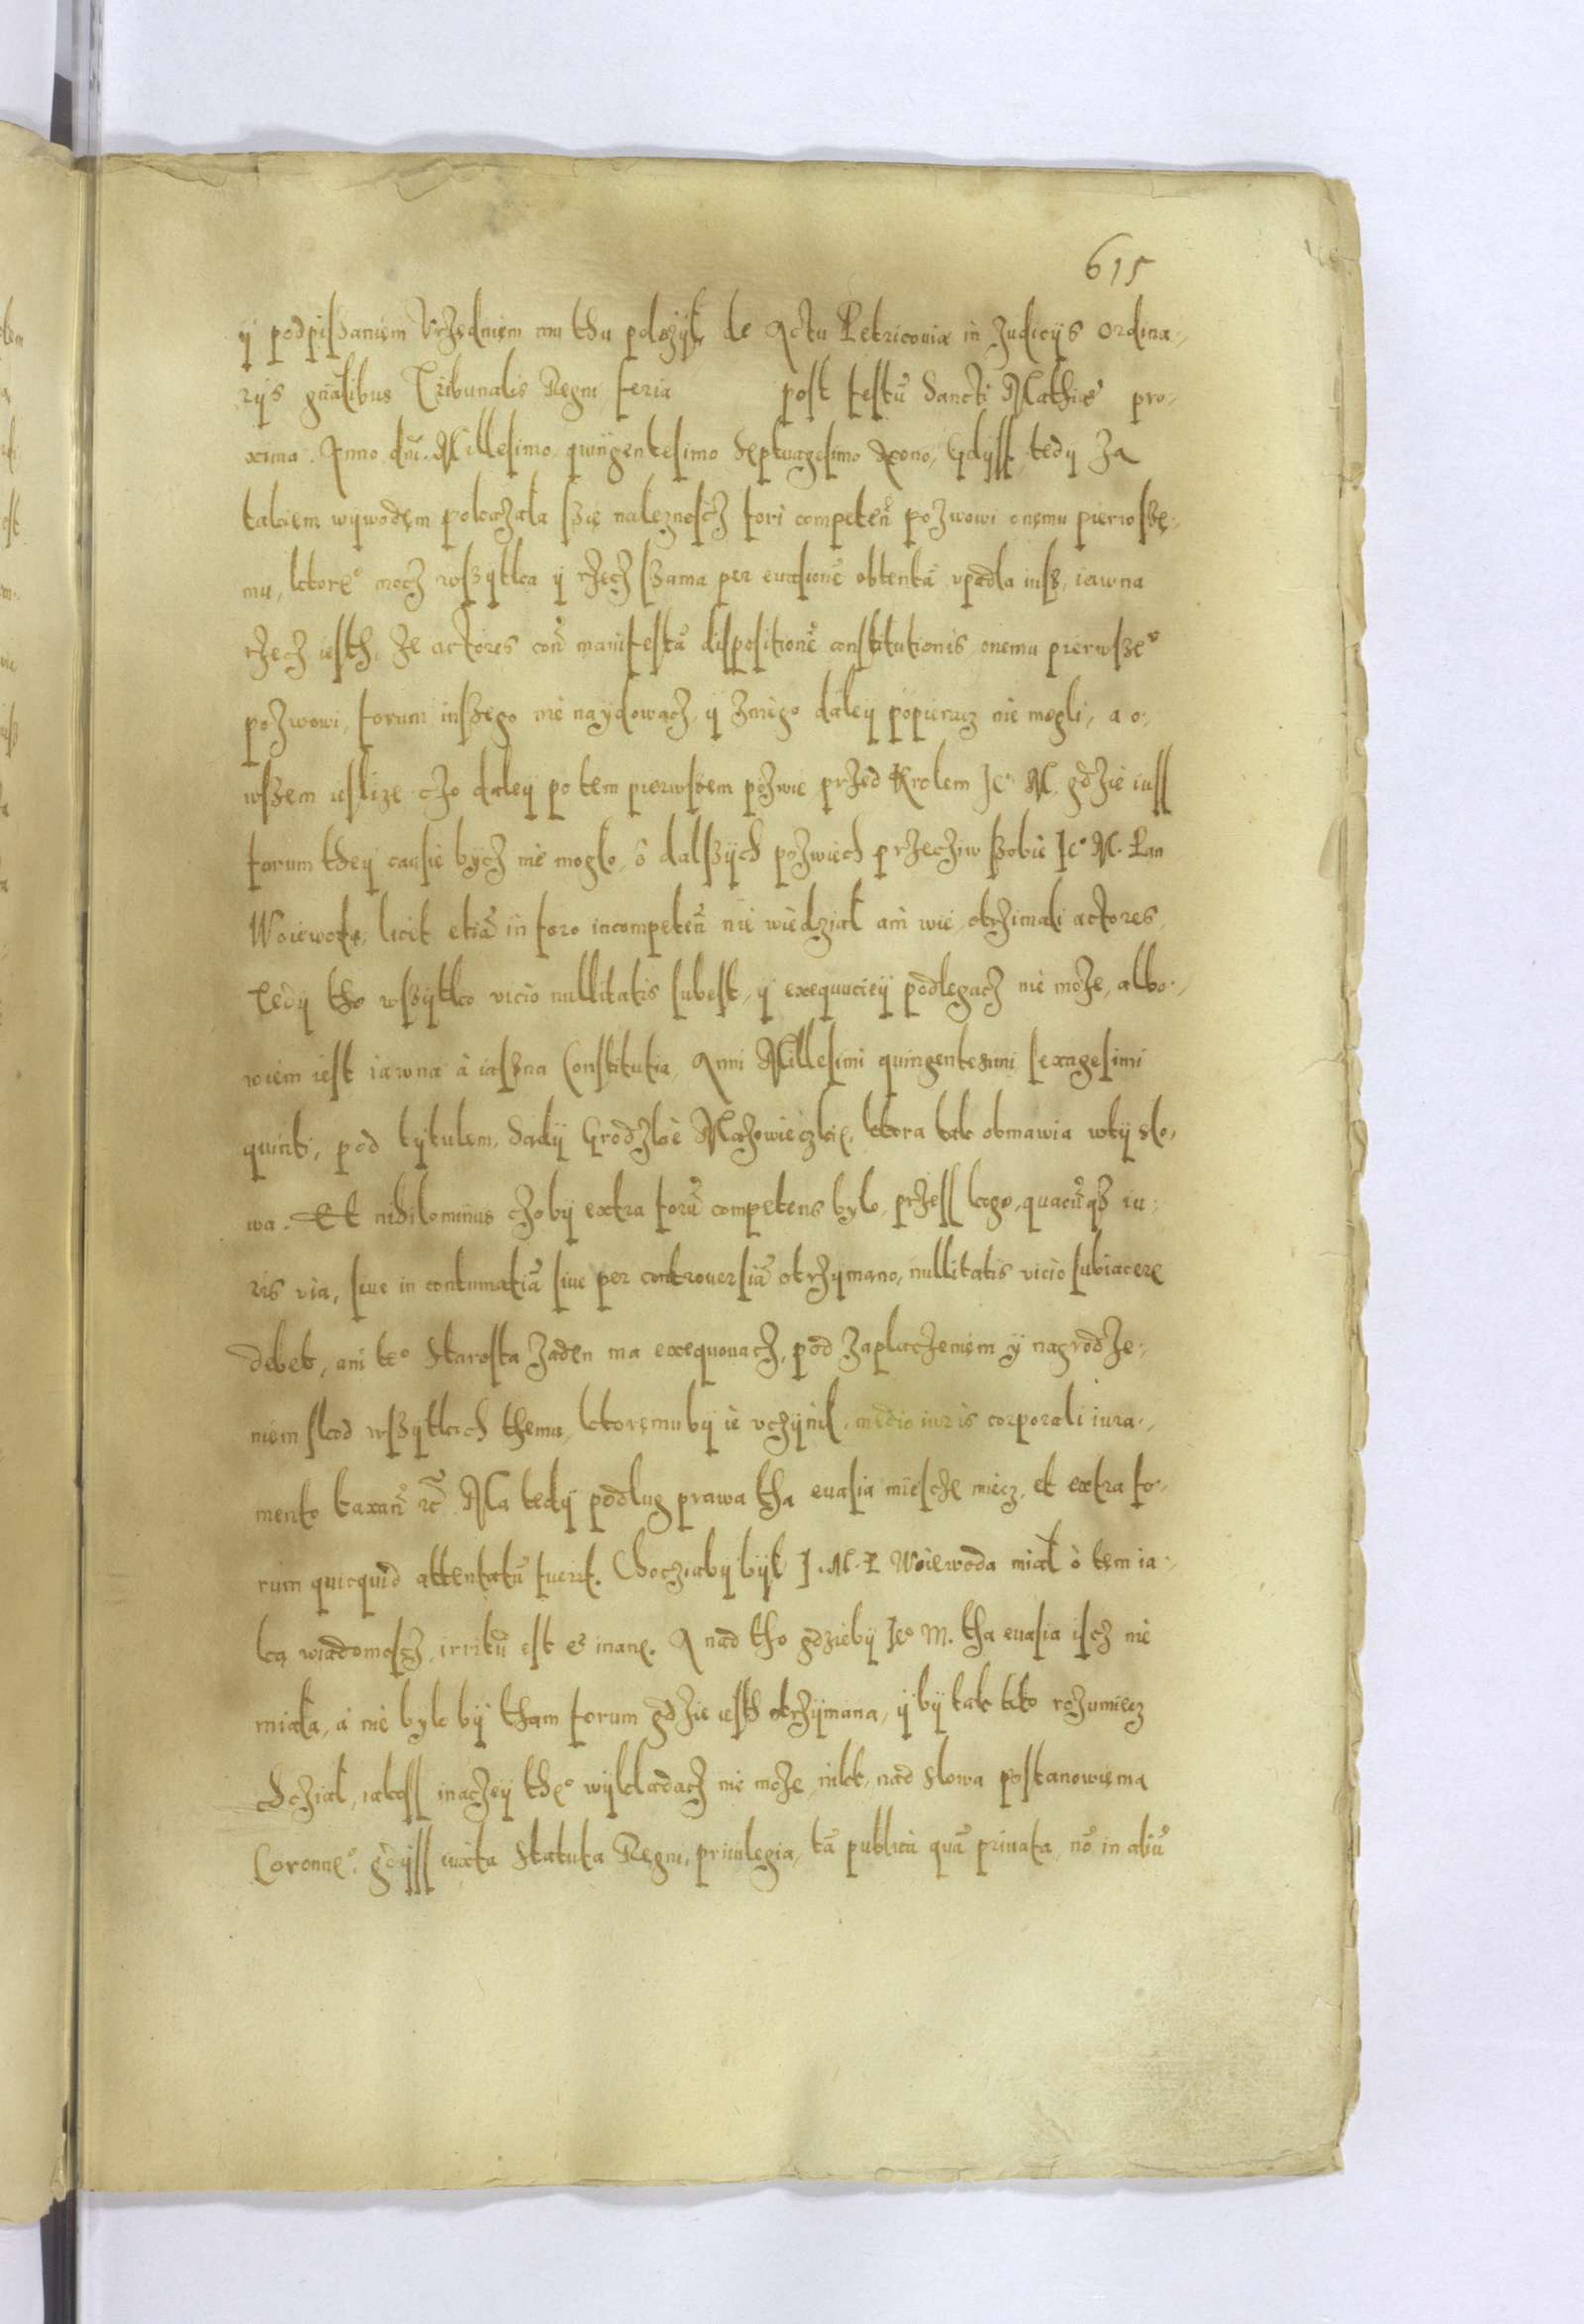 615
ÿ podpiszaniem Vrzędniem mu thu połozÿł, de Actu Petricouiæ in Judicÿs ordina-
rÿs gñalibus Tribunalis Regni feria post festũ Sancti Mathiæ pro-
xima. Anno dñi. Millesimo quingentesimo septuagesimo nono, Gdÿss tedÿ Za
takiem wÿwodem pokazała szię nalezność fori competeñ pozwowi onemu pierwsze-
mu, ktore° mocz wszÿtka ÿ rzecz szama per euasionẽ obtentã vpadla iusz, iawna
rzecz iesth, ze actores coñ manifestã dispositionẽ constitutionis onemu pierwsze°
pozwowi, forum inszego nie naÿdowacz, ÿ znięgo daleÿ popieracz nie mogli, a o-
wszem ieslize czo daleÿ po tem pierwszem pozwie przed Krolem Je° M. gdzie iuss
forum theÿ causie bÿcz nie moglo, o dalszÿch pozwiech przeciw szobie Je° M. Pan
Woiewoda, licet etiã in foro incompeteñ nie wiedział ani wie, otrzimali actores,
Tedÿ tho wszÿtko vicio nullitatis subest, ÿ exequucieÿ podlegacz nie moze, albo-
wiem iest iawna a iaszna Constitutia Anni Millesimi quingentesimi sexagesimi
quinti, pod tÿtulem, Sądÿ Grodzkie Mazowieczkie, ktora tak obmawia wtÿ slo-
wa. Et nihilominus czobÿ extra forũ competens bÿlo, przess kogo, quacũqz iu-
ris via, siue in contumatiã siue per controuersiã otrzÿmano, nullitatis vicio subiacere
debet, ani te° Starosta zaden ma exequouacz, pod zaplaczeniem ÿ nagrodze-
niem szkod wszÿtkich themu, ktoremubÿ ie vczÿnił, medio iuris corporali iura-
mento taxañ etc̃. Ma tedÿ podlug prawa tha euasia miescze miecz, et extra fo-
rum quicquid attentatũ fuerit. Chocziabÿ bÿł J. M. P. Woiewoda miał o tem ia-
ką wiadomoscz, irritũ est et inane. A nad tho gdziebÿ Je° M. tha euasia iscz nie
miała, a nie bÿlo bÿ tham forum gdzie iesth otrzÿmana, ÿ bÿ tak kto rozumiecz
chcział, iakoss inaczeÿ the° wÿkladacz nie moze nikt, nad słowa postanowienia
Coronne°, gdÿss iuxta Statuta Regni, priuilegia, tã publica quã priuata, nõ in aliũ